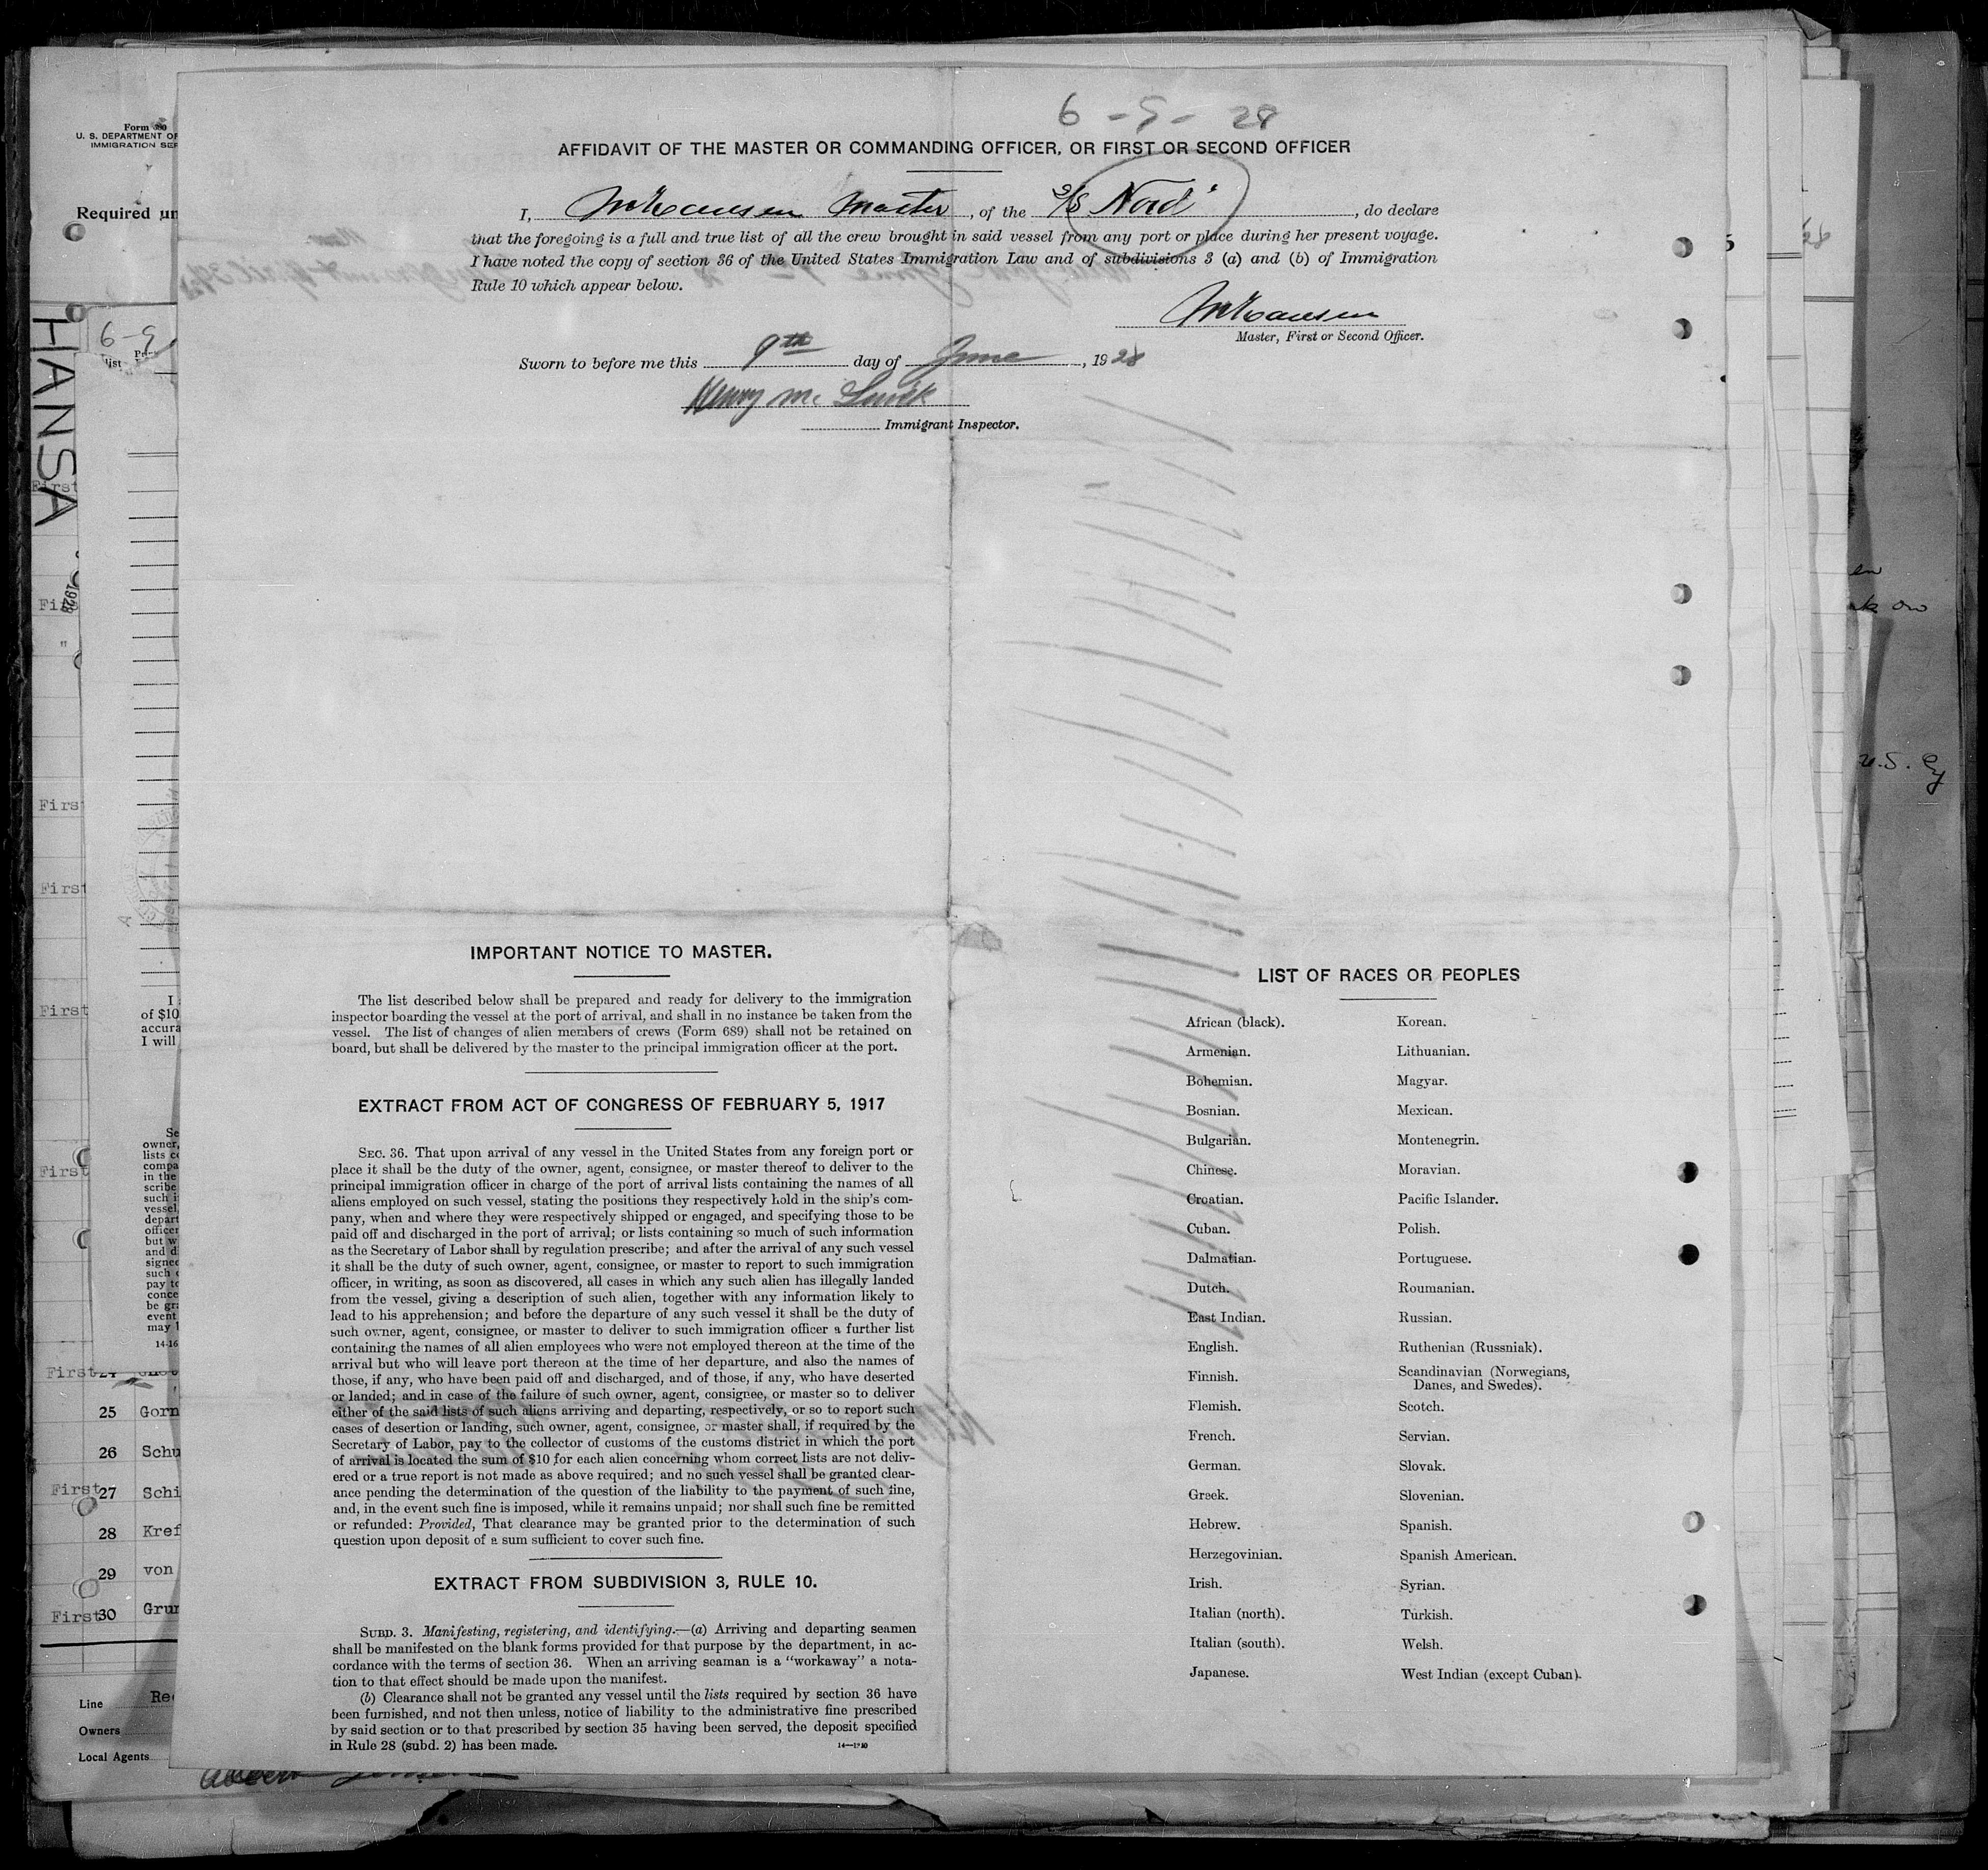 6 - 9 - 28
AFFIDAVIT OF THE MASTER OR COMMANDING OFFICER, OR FIRST OR SECOND OFFICER
I, Master, of the S/S "Nord", do declare
that the foregoing is a full and true list of all the crew brought in said vessel from any port or place during her present voyage.
I have noted the copy of section 36 of the United States Immigration Law and of subdivisions 3 (a) and (b) of Immigration
Rule 10 which appear below.
Master, First or Second Officer.
Sworn to before me this 9th day of June, 1928
Henry Mc
Immigrant Inspector.
IMPORTANT NOTICE TO MASTER.
The list described below shall be prepared and ready for delivery to the immigration
inspector boarding the vessel at the port of arrival, and shall in no instance be taken from the
vessel. The list of changes of alien members of crews (Form 689) shall not be retained on
board, but shall be delivered by the master to the principal immigration officer at the port.
EXTRACT FROM ACT OF CONGRESS OF FEBRUARY 5, 1917
SEC. 36. That upon arrival of any vessel in the United States from any foreign port or
place it shall be the duty of the owner, agent, consignee, or master thereof to deliver to the
principal immigration officer in charge of the port of arrival lists containing the names of all
aliens employed on such vessel, stating the positions they respectively hold in the ship's com-
pany, when and where they were respectively shipped or engaged, and specifying those to be
paid off and discharged in the port of arrival; or lists containing so much of such information
as the Secretary of Labor shall by regulation prescribe; and after the arrival of any such vessel
it shall be the duty of such owner, agent, consignee, or master to report to such immigration
officer, in writing, as soon as discovered, all cases in which any such alien has illegally landed
from the vessel, giving a description of such alien, together with any information likely to
lead to his apprehension; and before the departure of any such vessel it shall be the duty of
such owner, agent, consignee, or master to deliver to such immigration officer a further list
containing the names of all alien employees who were not employed thereon at the time of the
arrival but who will leave port thereon at the time of her departure, and also the names of
those, if any, who have been paid off and discharged, and of those, if any, who have deserted
or landed; and in case of the failure of such owner, agent, consignee, or master so to deliver
either of the said lists of such aliens arriving and departing, respectively, or so to report such
cases of desertion or landing, such owner, agent, consignee, or master shall, if required by the
Secretary of Labor, pay to the collector of customs of the customs district in which the port
of arrival is located the sum of $10 for each alien concerning whom correct lists are not deliv-
ered or a true report is not made as above required; and no such vessel shall be granted clear-
ance pending the determination of the question of the liability to the payment of such fine,
and, in the event such fine is imposed, while it remains unpaid; nor shall such fine be remitted
or refunded: Provided, That clearance may be granted prior to the determination of such
question upon deposit of a sum sufficient to cover such fine.
EXTRACT FROM SUBDIVISION 3, RULE 10.
SUBD. 3. Manifesting, registering, and identifying.—(a) Arriving and departing seamen
shall be manifested on the blank forms provided for that purpose by the department, in ac-
cordance with the terms of section 36. When an arriving seaman is a "workaway" a nota-
tion to that effect should be made upon the manifest.
(b) Clearance shall not be granted any vessel until the lists required by section 36 have
been furnished, and not then unless, notice of liability to the administrative fine prescribed
by said section or to that prescribed by section 35 having been served, the deposit specified
in Rule 28 (subd. 2) has been made.
LIST OF RACES OR PEOPLES
African (black).
Armenian.
Bohemian.
Bosnian.
Bulgarian.
Chinese.
Croatian.
Cuban.
Dalmatian.
Dutch.
East Indian.
English.
Finnish.
Flemish.
French.
German.
Greek.
Hebrew.
Herzegovinian.
Irish.
Italian (north).
Italian (south).
Japanese.
Korean.
Lithuanian.
Magyar.
Mexican.
Montenegrin.
Moravian.
Pacific Islander.
Polish.
Portuguese.
Roumanian.
Russian.
Ruthenian (Russniak).
Scandinavian (Norwegians,
Danes, and Swedes).
Scotch.
Servian.
Slovak.
Slovenian.
Spanish.
Spanish American.
Syrian.
Turkish.
Welsh.
West Indian (except Cuban).
Form
U. S. DEPARTMENT OF
IMMIGRATION SER
Required un
HANSA
6-9
1928
First
First
First
First
First
First
of $10
accura
I will
owner,
lists
compa
in the
scribe
such
vessel,
depart
officer
but w
and d
signee
such
pay to
conce
be gra
event
may
25 Gorn
26 Schu
First 27 Schi
28 Kref
29 von
First 30 Grun
Line
Owners
Local Agents
U.S.